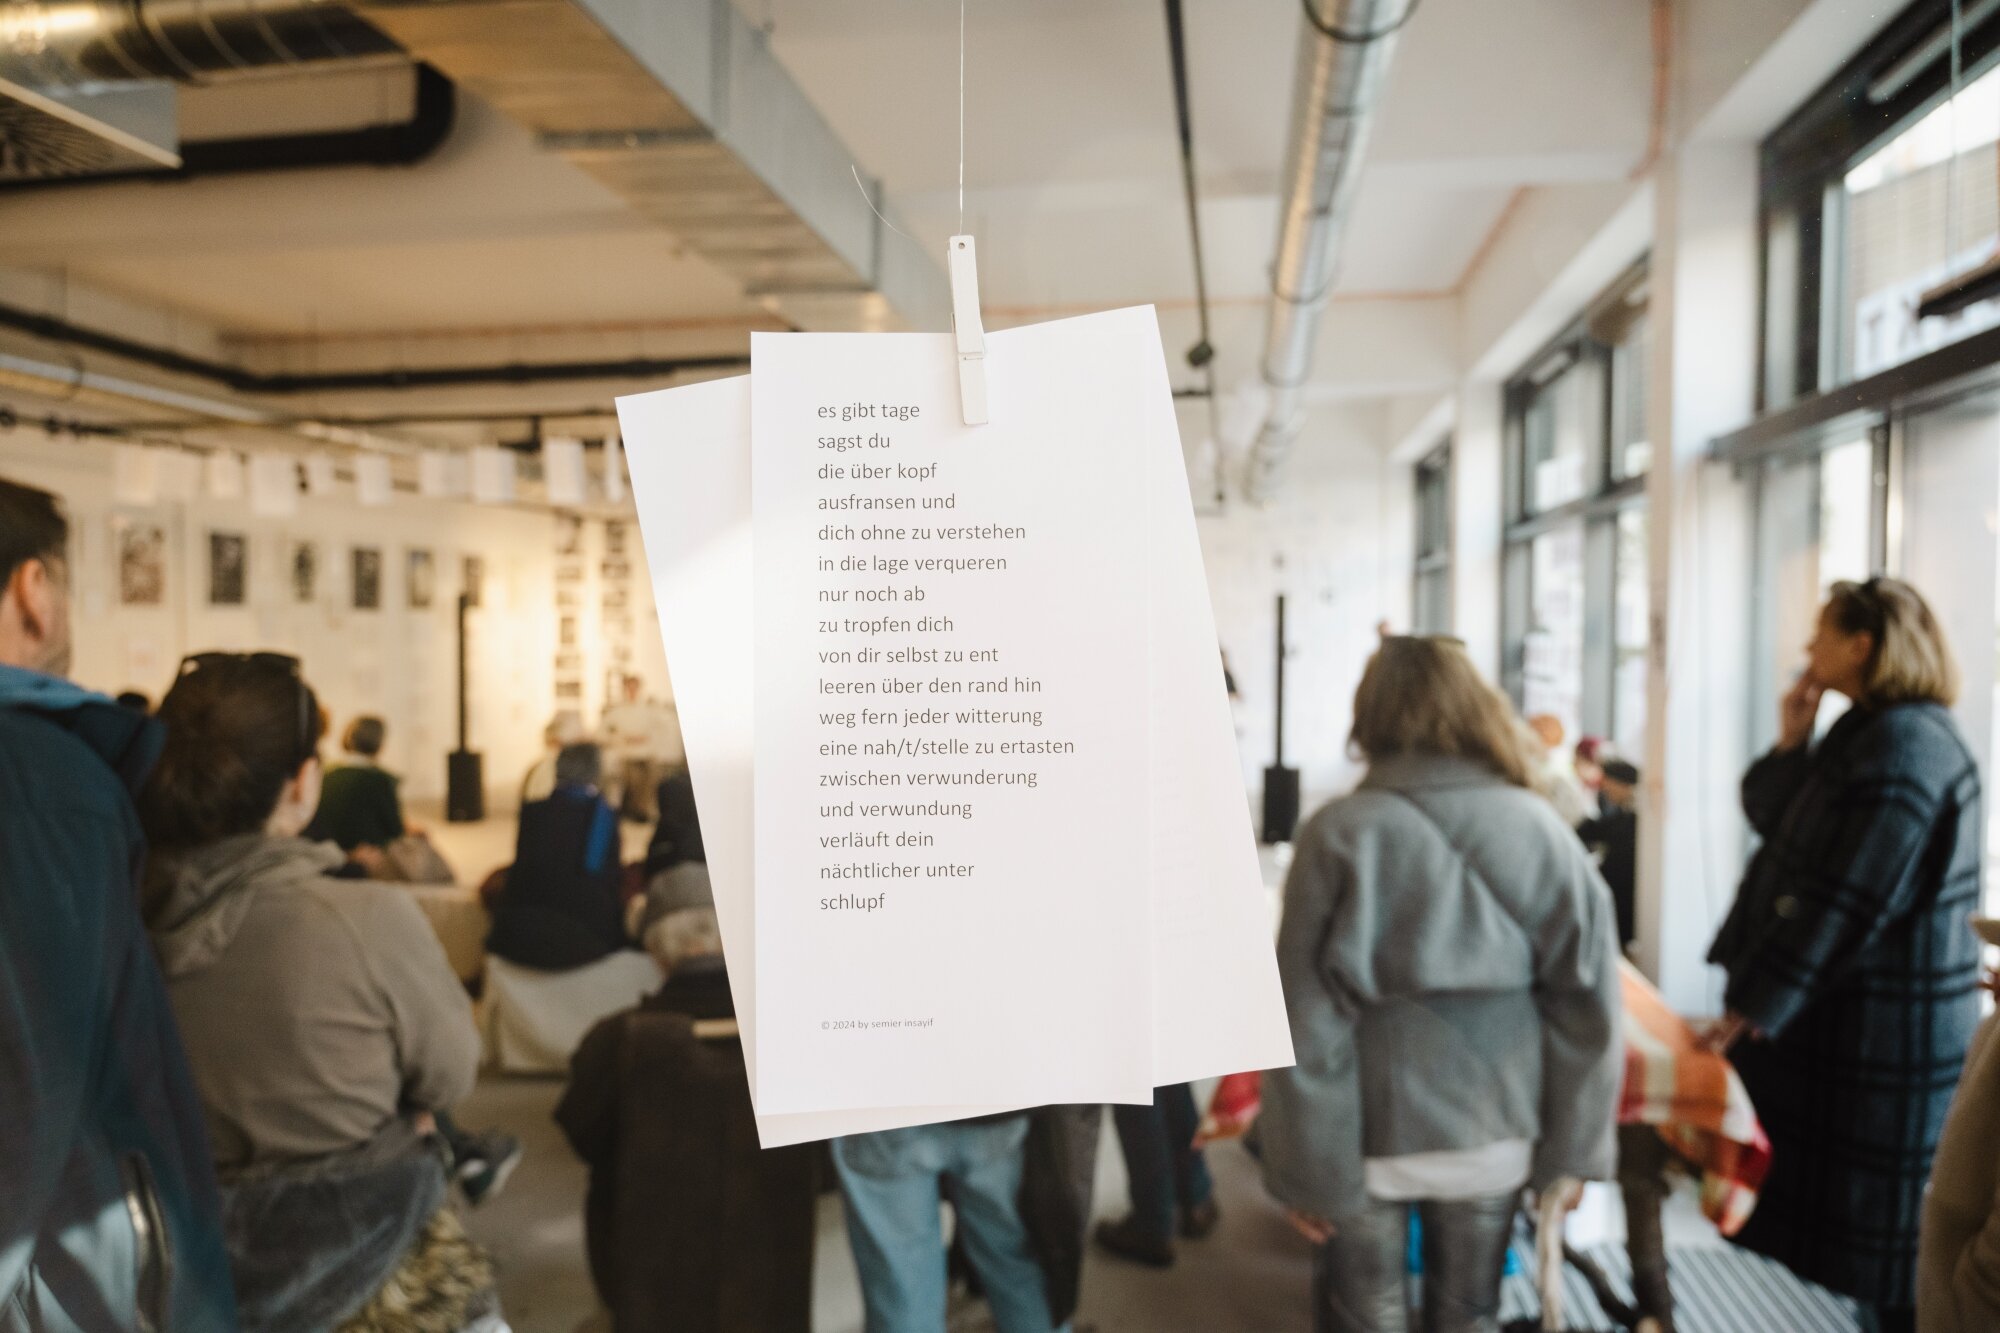 es gibt tage
sagst du
die über kopf
ausfransen und
dich ohne zu verstehen
in die lage verqueren
nur noch ab
zu tropfen dich
von dir selbst zu ent
leeren über den rand hin
weg fern jeder witterung
eine nah/t/stelle zu ertasten
zwischen verwunderung
und verwundung
verläuft dein
nächtlicher unter
schlupf
© 2024 by semier insayif